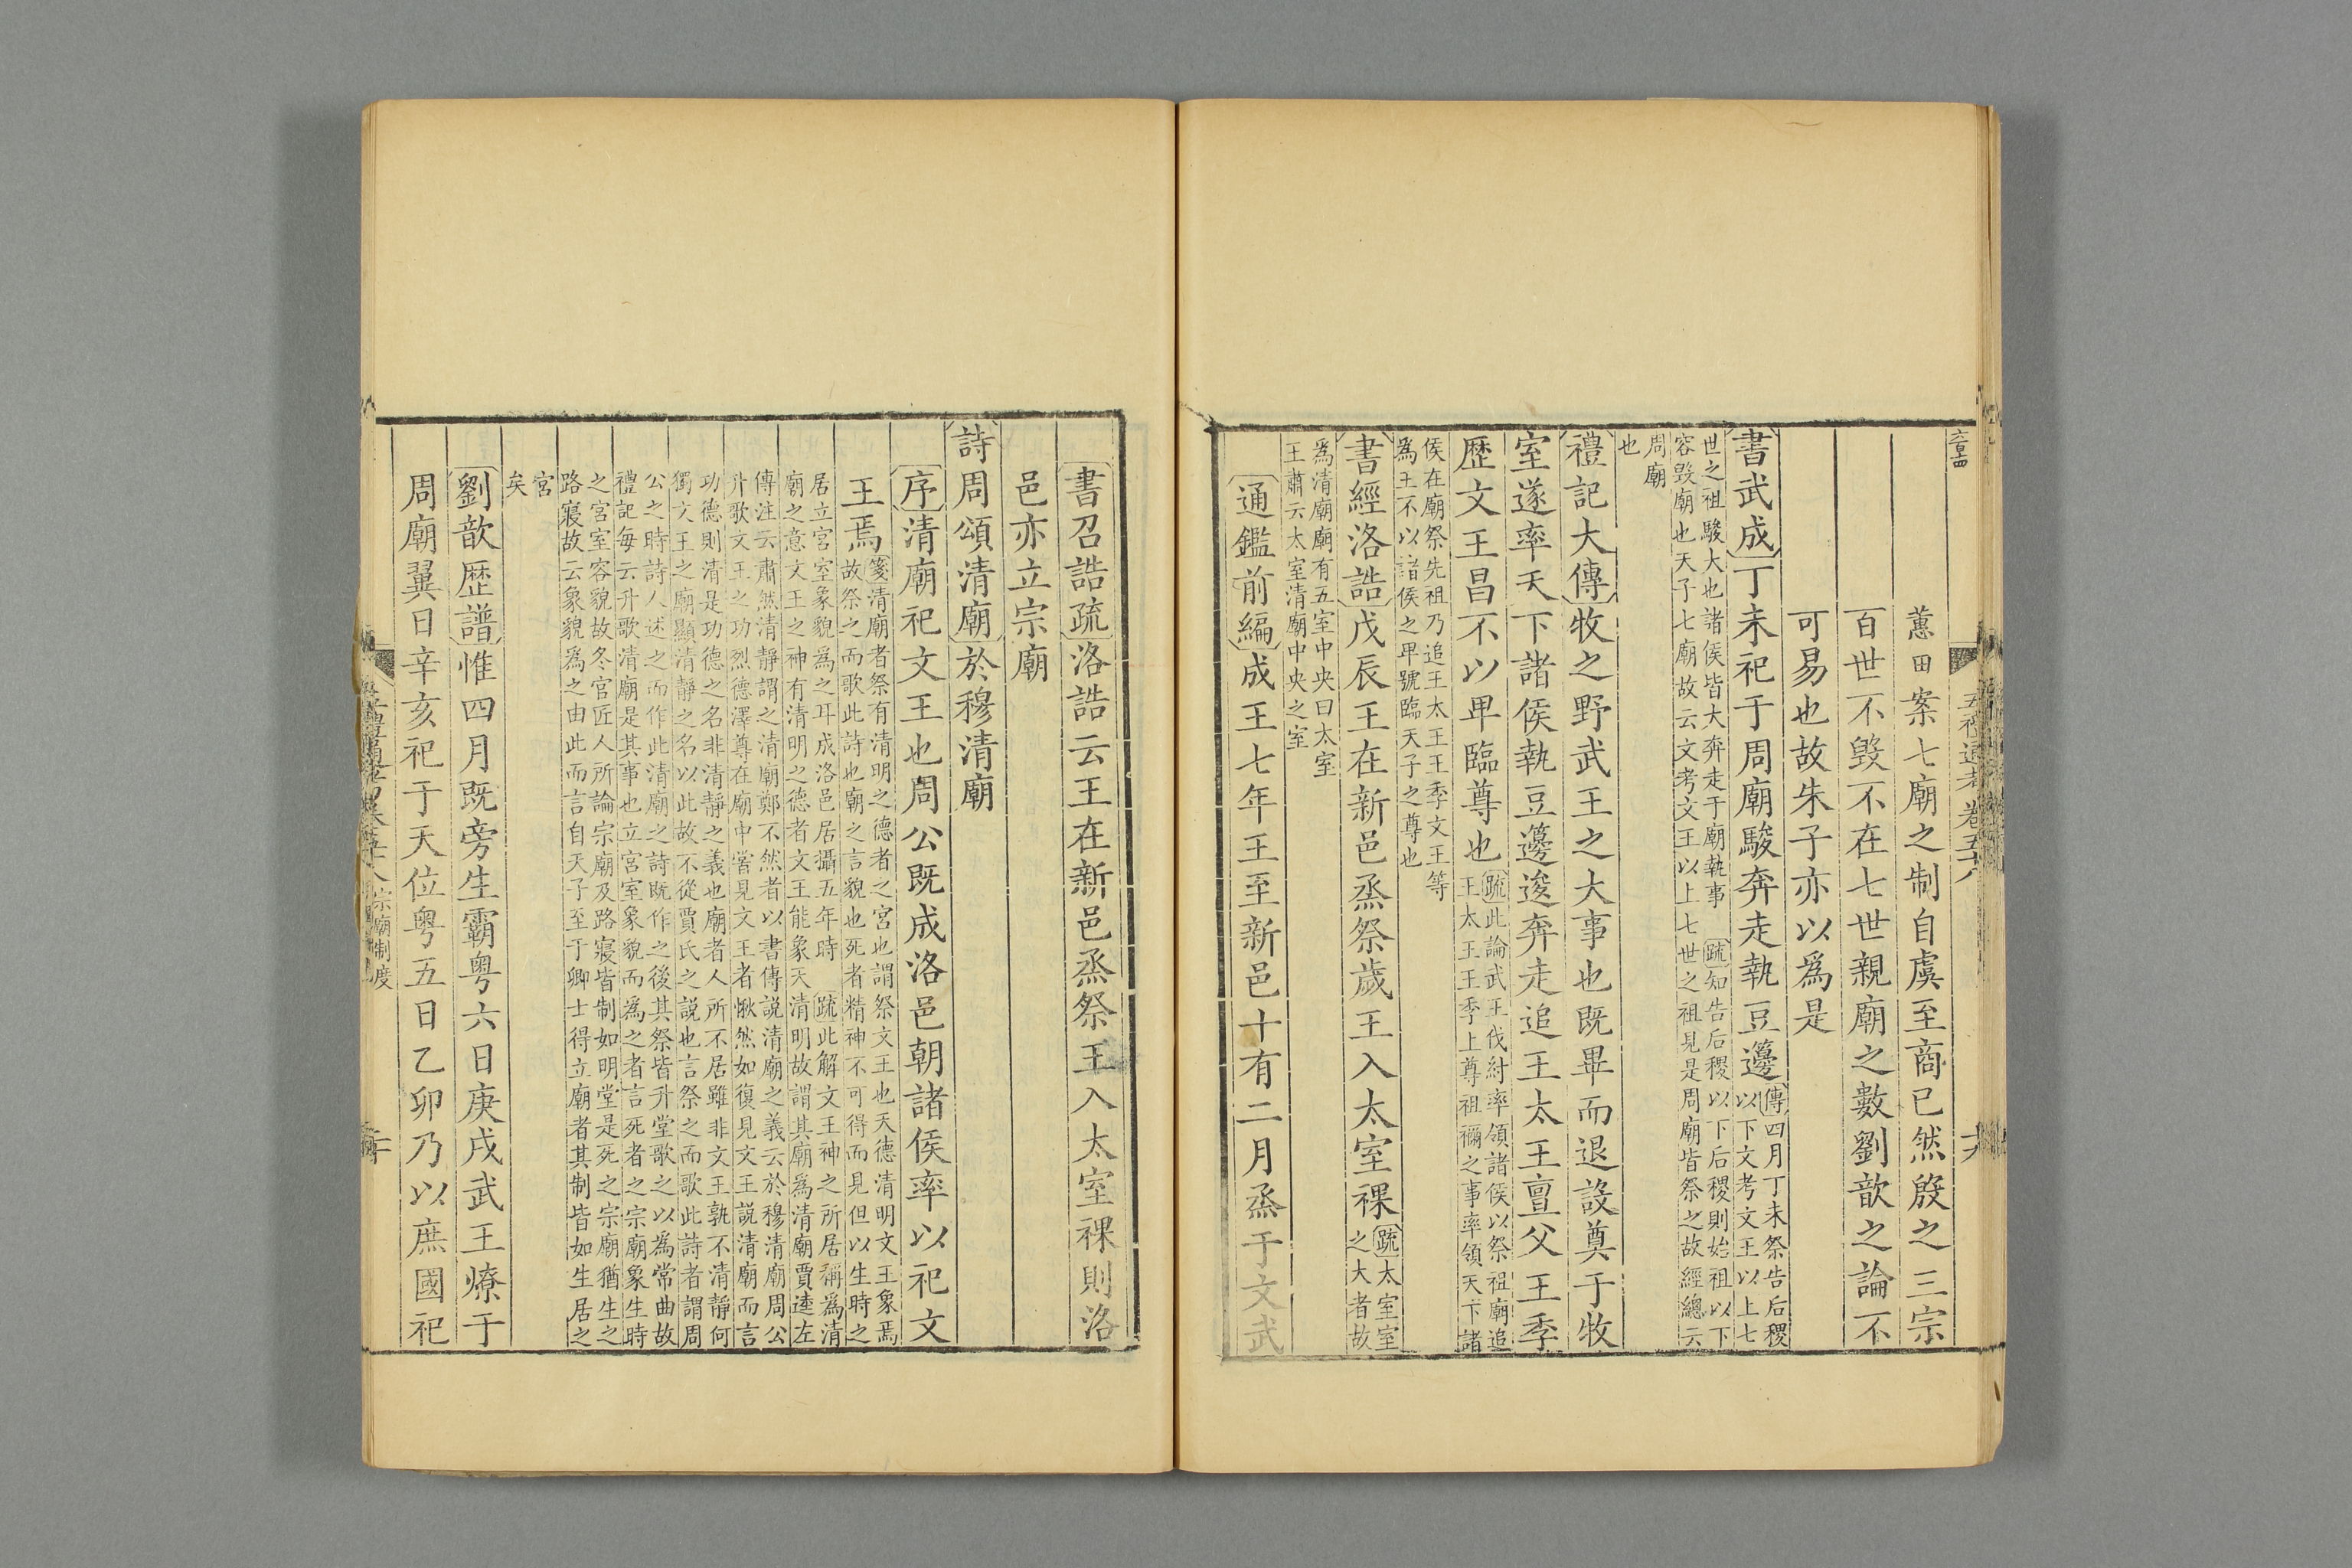 五禮通考 卷五十八
蕙田案七廟之制自虞至商已然殷之三宗
百世不毀不在七世親廟之數劉歆之論不
可易也故朱子亦以爲是
書武成丁未祀于周廟駿奔走執豆籩傳四月丁未祭告后稷
以下文考文王以上七
世之祖駿大也諸侯皆大奔走于廟執事 疏知告后稷以下后稷則始祖以下
容毀廟也天子七廟故云文考文王以上七世之祖見是周廟皆祭之故經總云
周廟
也
禮記大傳牧之野武王之大事也既畢而退設奠于牧
室遂率天下諸侯執豆籩逡奔走追王太王亶父王季
歴文王昌不以卑臨尊也疏此論武王伐紂率領諸侯以祭祖廟追
王太王王季上尊祖禰之事率領天下諸
侯在廟祭先祖乃追王太王王季文王等
爲王不以諸侯之卑號臨天子之尊也
書經洛誥戊辰王在新邑烝祭歲王入太室祼疏太室室
之大者故
爲清廟廟有五室中央曰太室
王肅云太室清廟中央之室
通鑑前編成王七年王至新邑十有二月烝于文武
書召誥疏洛誥云王在新邑烝祭王入太室祼則洛
邑亦立宗廟
詩周頌清廟於穆清廟
序清廟祀文王也周公既成洛邑朝諸侯率以祀文
王焉箋清廟者祭有清明之德者之宮也謂祭文王也天德清明文王象焉
故祭之而歌此詩也廟之言貌也死者精神不可得而見但以生時之
居立宮室象貌爲之耳成洛邑居攝五年時 疏此解文王神之所居稱爲清
廟之意文王之神有清明之德者文王能象天清明故謂其廟爲清廟賈逵左
傳注云肅然清靜謂之清廟鄭不然者以書傳説清廟之義云於穆清廟周公
升歌文王之功烈德澤尊在廟中嘗見文王者愀然如復見文王説清廟而言
功德則清是功德之名非清靜之義也廟者人所不居雖非文王孰不清靜何
獨文王之廟顯清靜之名以此故不從賈氏之説也言祭之而歌此詩者謂周
公之時詩人述之而作此清廟之詩既作之後其祭皆升堂歌之以爲常曲故
禮記每云升歌清廟是其事也立宮室象貌而爲之者言死者之宗廟象生時
之宮室容貌故冬官匠人所論宗廟及路寢皆制如明堂是死之宗廟猶生之
路寢故云象貌爲之由此而言自天子至于卿士得立廟者其制皆如生居之
宮
矣
劉歆歴譜惟四月既旁生霸粤六日庚戌武王燎于
周廟翼日辛亥祀于天位粤五日乙卯乃以庶國祀
宗廟制度